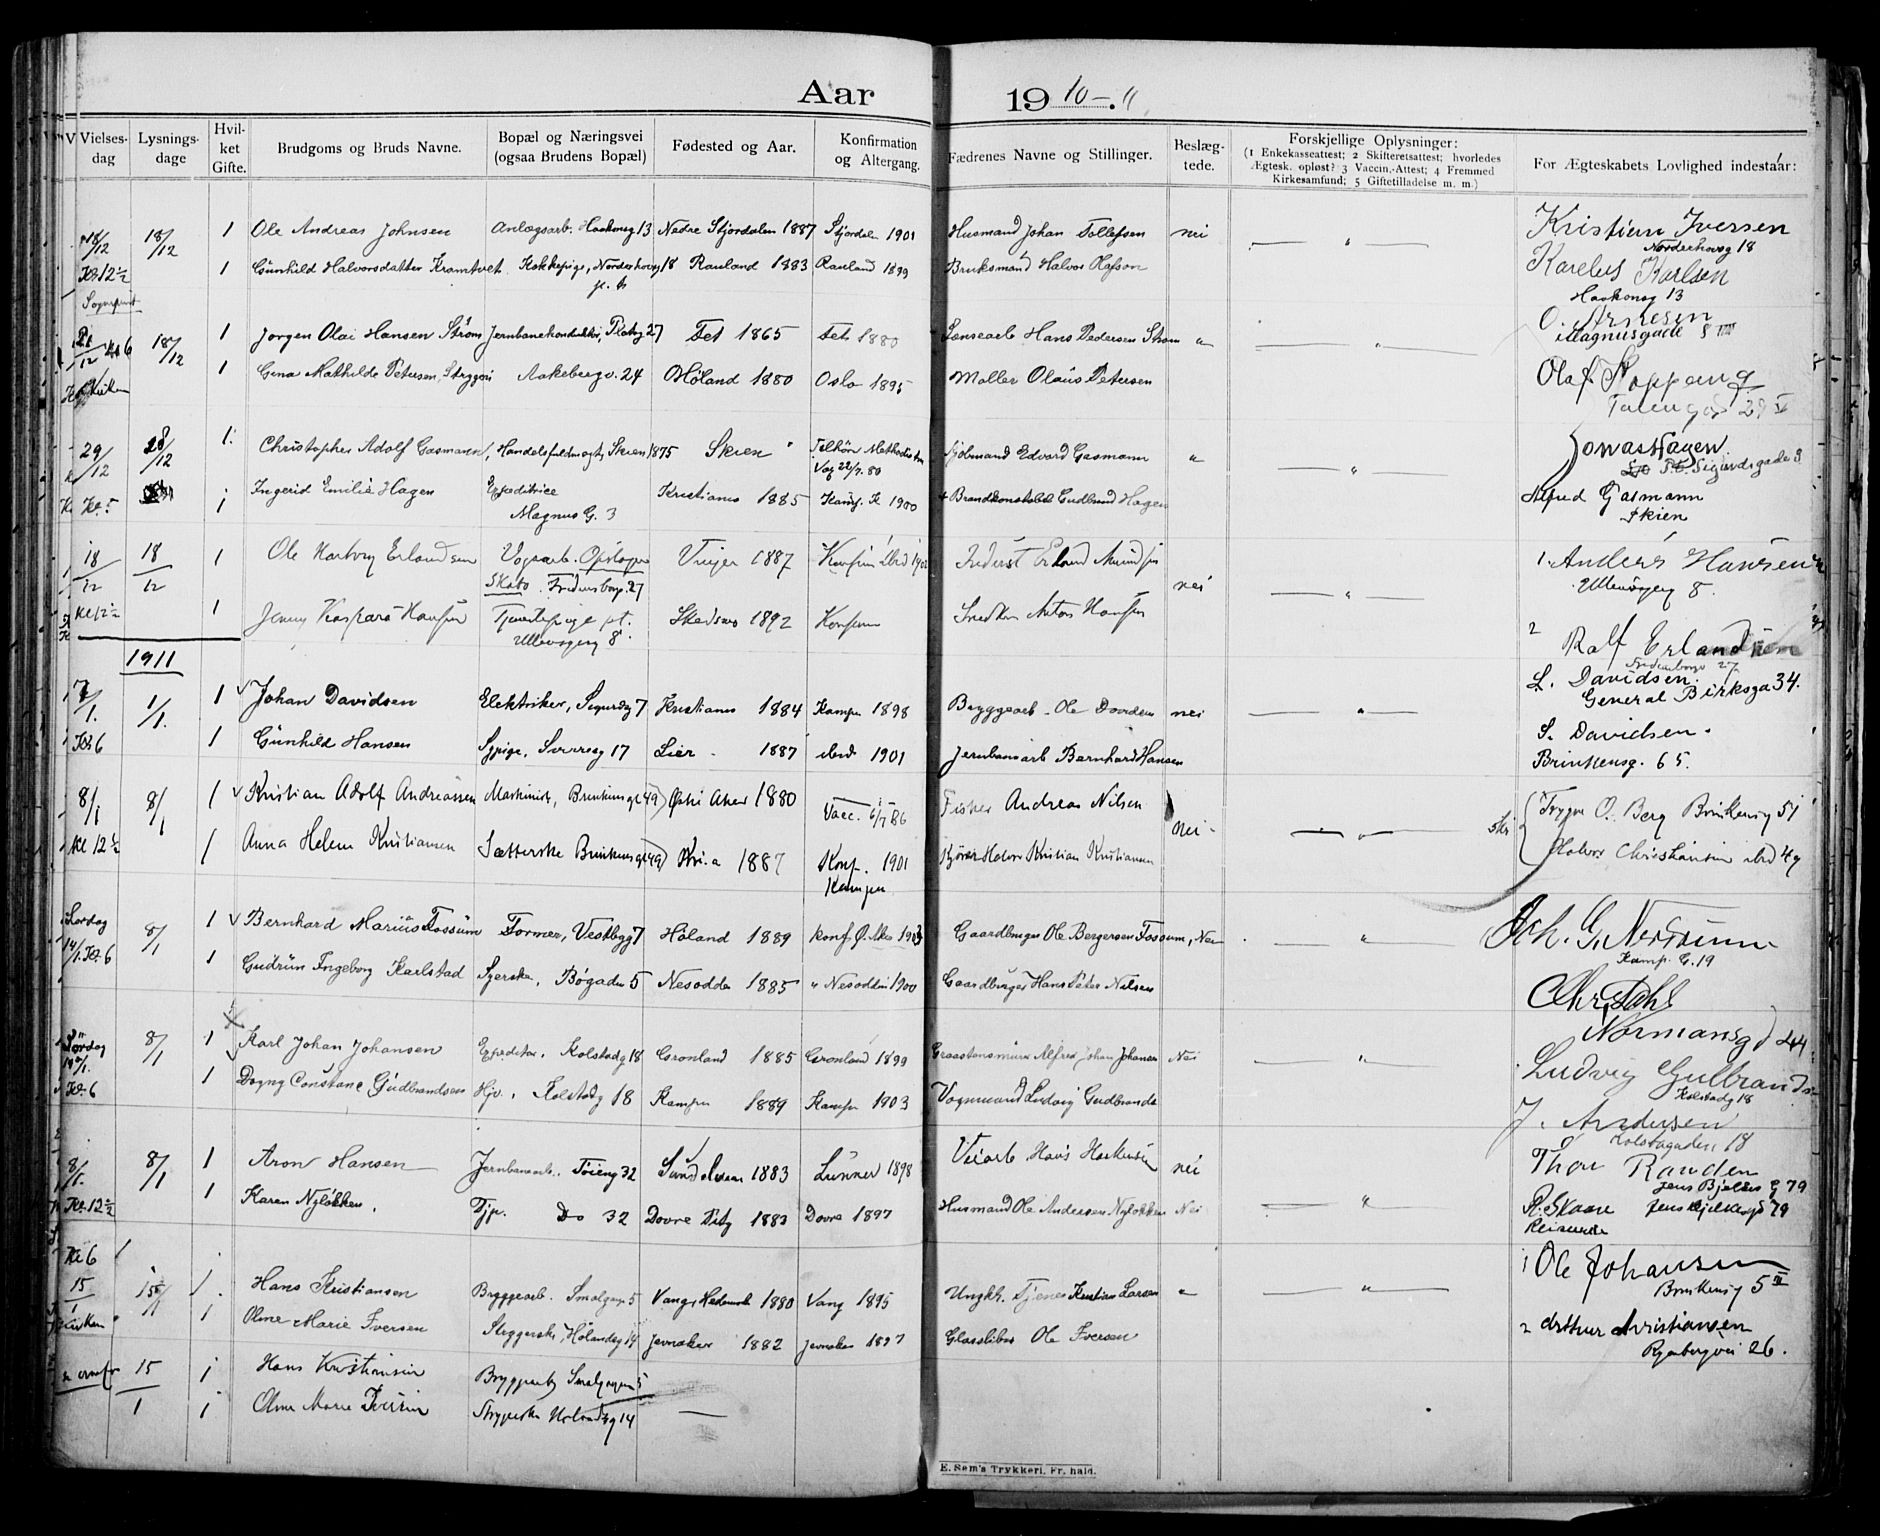 Aar 19 10-11
Vielses-dag
Lysnings-dage
Hvil-ket Gifte.
Brudgoms og Bruds Navne.
Bopæl og Næringsvei (ogsaa Brudens Bopæl)
Fødested og Aar.
Konfirmation og Altergang.
Fædrenes Navne og Stillinger.
Beslæg-tede.
Forskjellige Oplysninger:
(1 Enkekasseattest; 2 Skifteretsattest; hvorledes
Ægtesk. opløst? 3 Vaccin.-Attest; 4 Fremmed
Kirkesamfund; 5 Giftetilladelse m. m.)
For Ægteskabets Lovlighed indestaar:
18/12 18/12 1 Ole Andreas Johnsen Anlægsarb. Haakonsg 13 Nedre Stjordalen 1887 Stjordalen 1901 Husmand Johan Tollefsen nei " Kristian Iversen
Norderhovsg 18
Kl 12½ 1 Gunhild Halvorsdatter Kokkepige, Norderhovsg 18 Rauland 1883 Rauland 1899 Bruksmand Halvor Olafson Karelius Karlsen
Haakonsg 13
18/12 1 Jørgen Olai Hansen Strøm Jernbanekonduktør, Platousg 27 Fet 1865 Fet 1880 Hans Pedersen Strøm " " O. Arnesen
Magnusgade 8 III
Kirken 1 Gina Mathilde Petersen, Strygeri Aakebergv. 24 Høland 1880 Oslo 1895 Møller Olaus Petersen Olaf Koppang
29/12 28/12 1. Christopher Adolf Gasmann, Handelsfuldmægtig Skien 1875 Skien Vac 22/7 80 Sjømand Edvard Gasmann " " Jonas Hagen
Sigurdsgade 3
Kl. 5 1 Ingerid Emilie Hagen Expeditrice Kristiania 1885 Kamp. K 1900 + Brandkonstabel Gudbrand Hagen Alfred Gasmann
Magnus G. 3 Skien
18/12 18/12 1 Ole Hartvig Erlandsen Vognarb. Opsloger 1887 Erland nei " 1. Anders Hansen
Fredensborgv. 27 Ullevoldsveg 8.
Kl 12½ 1 Jenny Kaspara Hansen Tjenestepige pt. Skedsmo 1892 Snedker Anton Hansen 2 Ralf Erlandsen
Ullevoldsveg 8.
1911
7/1. 1/1. 1 Johan Davidsen Elektriker, Sigurdsg 7 Kristiania 1884 Kampen 1898 Bryggearb. Ole Davidsen nei " L. Davidsen.
General Birksga 34.
Kl 6 1 Gunhild Hansen Sypige, Sverresg 17 Lier 1887 ibid 1901 Jernbanearb Bernhard Hansen S. Davidsen.
Brinkensg. 65.
8/1 8/1 1 Kristian Adolf Andreassen Maskinist, Brinkensgt 49 Østre Aker 1880 Vacc. 6/7 86 Fisker Andreas Nilsen nei " Trygve O. Berg Brinkensg 51
Kl 12½ 1 Anna Helene Kristiansen Sætterske Brinkensgt 49 Kr.a 1887 Konf. 1901 Kjører Halvor Kristian Kristiansen Halvor Christiansen ibid 49
Kampen
Lørdag 8/1 1 Bernhard Marius Fossum Former, Vestbyg 7 Høland 1889 Konf. Ø. Aker 1903 Gaardbruger Ole Bergersen Fossum, Nei " Joh. G. Nersum
Kamp. G. 19
14/1. Kl. 6 1 Gudrun Ingeborg Karlstad Syerske, Bøgaden 5 Nesodden 1885 " Nesodden 1900 Gaardbruger Hans Peter Nilsen Chr. Dahl
Normansgd 44
Lørdag 14/1. 8/1 1 Karl Johan Johansen Expeditør. Kolstadg 18 Grønland 1885 Grønland 1899 Graastensmurer Alfred Johan Johansen Nei " Ludvig Gulbrandsen
Kolstadg 18
Kl. 6 1 Dagny Constanc Gudbrandsen Hjv. Kolstadg 18 Kampen 1889 Kampen 1903 Vognmand Ludvig Gudbrands J. Andersen
Kolstadgaden 18
8/1. 8/1 1 Aron Hansen Jernbanearb. Tøieng 32 1883 Lunner 1898 Veiarb Hans nei Thor Randen
Jens Bjelkes G 79
Kl. 12½ 1 Karen Nyløkken, Tjp. Do 32 Dovre 1883 Dovre 1897 Husmand Ole Andersen Nyløkken Nei " R. Skaare Jens Bjelkesgd 79
Reisende
Kl 6
15/1 15/1 1 Hans Kristiansen Bryggearb. Smalgangen 5 Vang, Hedemark 1880 Vang 1895 Ungkh. Tjener Kristian Larsen " " 1 Ole Johansen
Brinkensg 5 III
Kirken 1 Oline Marie Iversen Strygerske, Hølandsg 14 Jevnaker 1882 Jevnaker 1897 Glassliber Ole Iversen 2 Arthur Kristiansen
Ryenbergvei 26.
15/1 1 Hans Kristiansen Bryggearb Smalgangen 5
1 Oline Marie Iversen Strygerske Hølandsg 14
E. Sem's Trykkeri. Fr. hald.